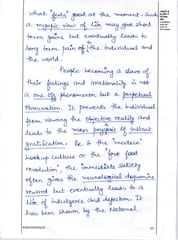 what 'feels' good at the moment. Such
a myopic view of life may give short
term gains but eventually leads to
long term pain of the individual and
the world.
People becoming a slave of
their feelings and irrationality is not
a one off phenomenon but a perpetual
observation. It prevents the individual
from viewing the objective reality and
leads to the of instant
gratification. Be it the 'modern'
hookup culture or the 'fast food
revolution', the immediate satiety
often gives the neurological dopamine
reward but eventually leads to a
life of indulgence and depletion. It
has been shown by the National